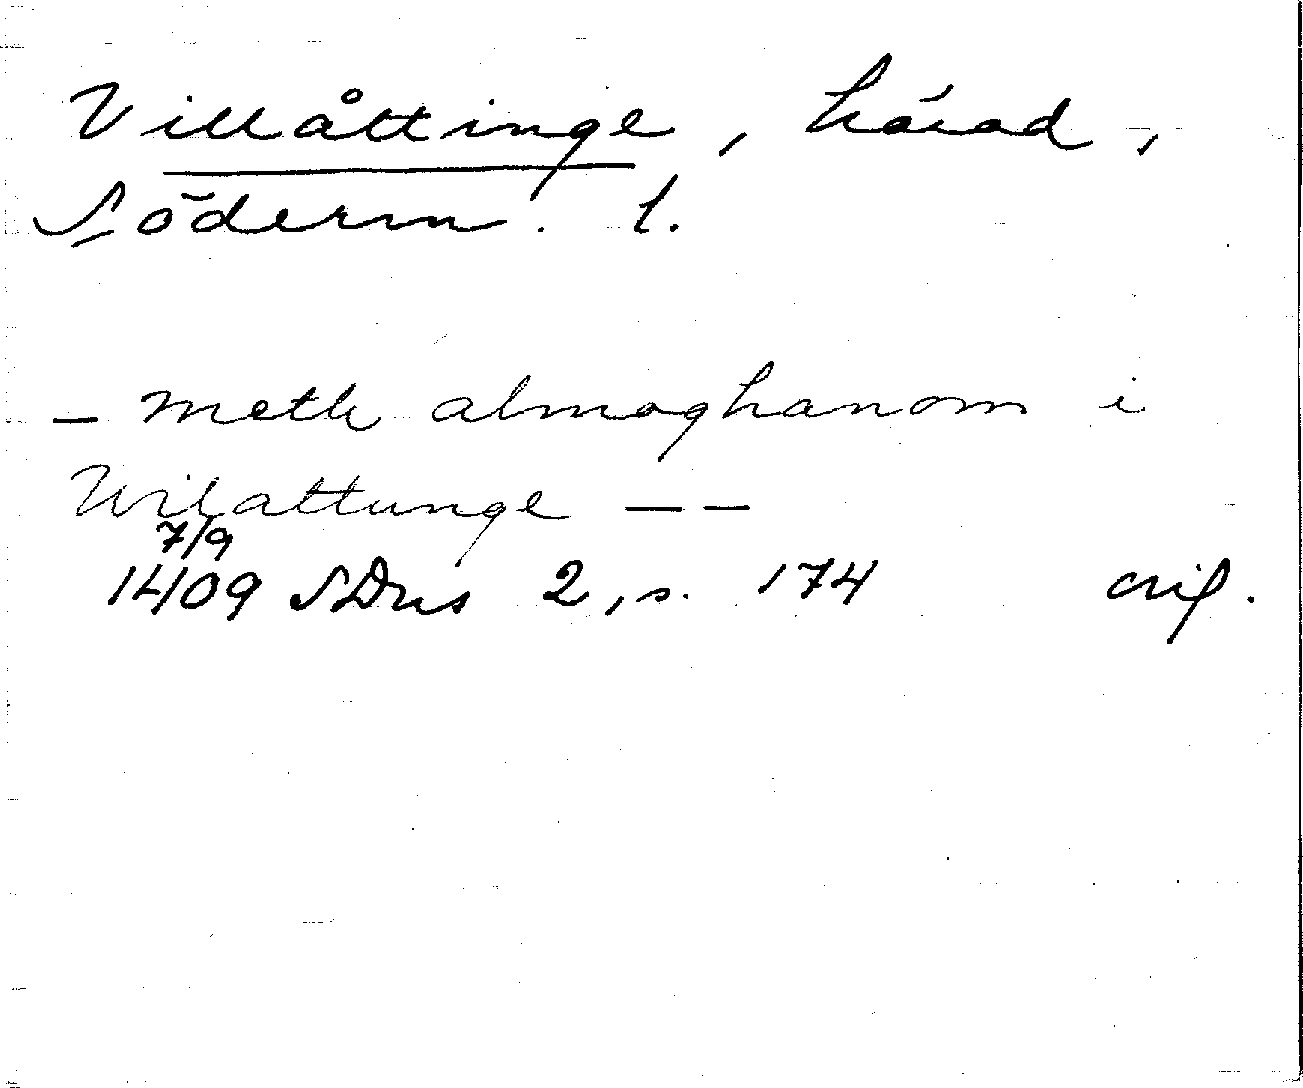 Villåttinge, härad,
Söderm. l.
– meth almoghanom i
Wilattunge – –
7/9
1409 SDns 2, s. 174 orig.